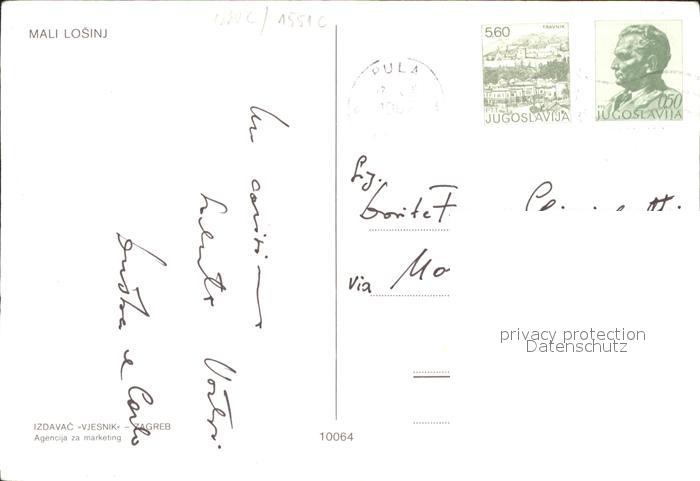 1551 C
MALI LOŠINJ
5.60 TRAVNIK
JUGOSLAVIJA
0.50
JUGOSLAVIJA
PULA
Un carissimo
saluto Vostri
e Carlo
Sig.
via Mo
privacy protection
Datenschutz
IZDAVAČ »VJESNIK« – ZAGREB
Agencija za marketing
10064